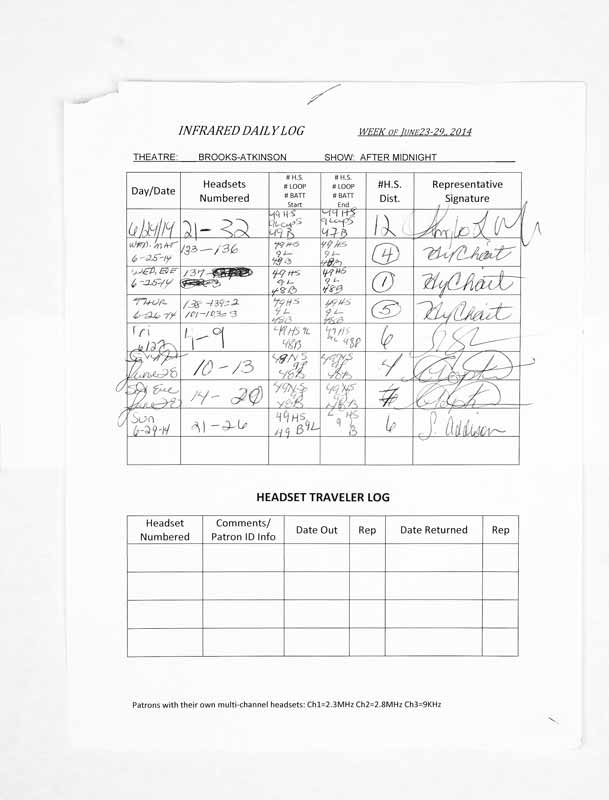 INFRARED DAILY LOG WEEK OF JUNE23-29, 2014
THEATRE: BROOKS-ATKINSON SHOW: AFTER MIDNIGHT
Day/Date
Headsets
Numbered
# H.S.
# LOOP
# BATT
Start
# H.S.
# LOOP
# BATT
End
#H.S.
Dist.
Representative
Signature
6/24/14 21-32 12
49HS
49B
49HS
47B
WED. MAT
6-25-14
133-136
49HS
9L
48B
49HS
9L
48B
4
WED. EVE
6-25-14
137-
49HS
9L
48B
49HS
9L
48B
1
THUR
6-26-14
138-139=2
101-103=3
49HS
9L
48B
49HS
9L
48B
5
Fri
6/27
7-9
49HS 9L
48B
49HS
9L 48B
6
June 28
10-13
48B
48B
4
Sat Eve
June 28
14-20
48B
48B
Sun
6-29-14
21-26
49HS
49 B9L
HS
9
B
6
S. Addison
HEADSET TRAVELER LOG
Headset
Numbered
Comments/
Patron ID Info
Date Out
Rep
Date Returned
Rep
Patrons with their own multi-channel headsets: Ch1=2.3MHz Ch2=2.8MHz Ch3=9KHz